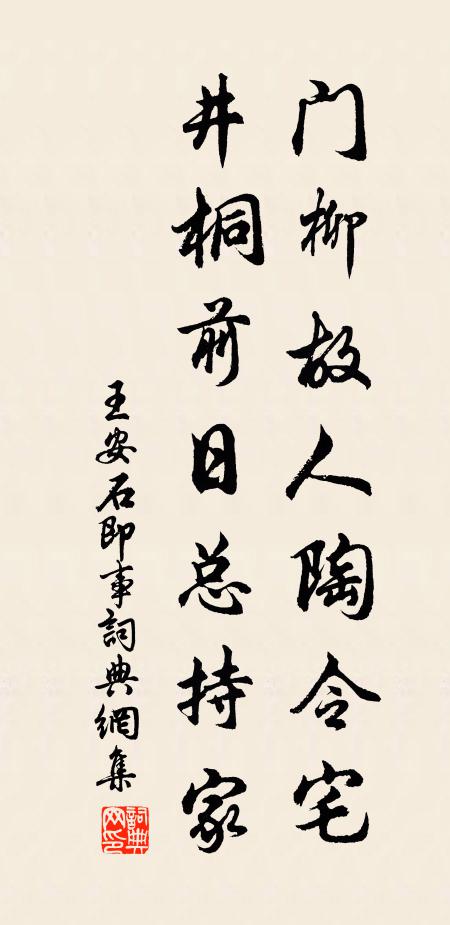 门柳故人陶令宅
井桐前日总持家
王安石即事詞典網集
詞典网印